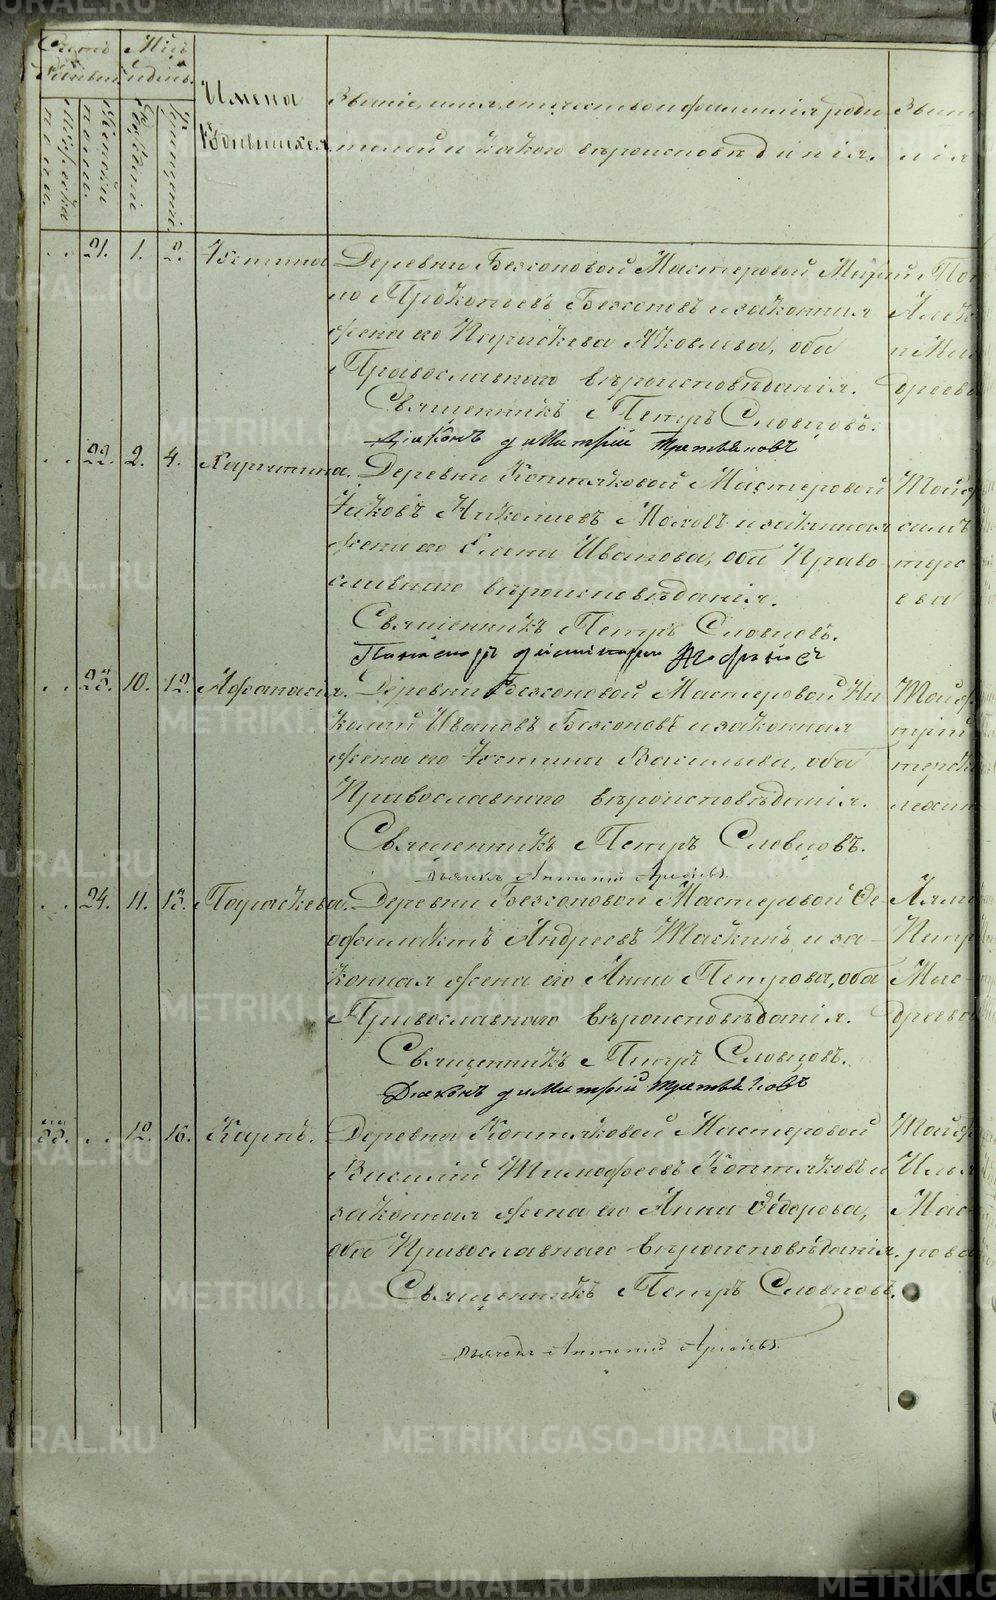 METRIKI.GASO-URAL.RU
Счетъ Родившихся
Мужеска пола.
Женска пола.
Мѣсяцъ и день.
Рожденія
Крещенія.
Имена Родившихся
Званіе, имя, отчество и фамилія роди
телей и какого вѣроисповѣданія.
Зван
лія
21. 1. 2. Устинья
Деревни Бехоновой Мастеровой
ло Прокопьевъ Бехоновъ и законная
жена его Параскева Яковлева, оба
Православнаго вѣроисповѣданія.
Священникъ Петръ Словцовъ.
Діаконъ Димитрій Третьяковъ
22. 2. 4. Харитина.
Деревни Коптяковой Мастеровой
Яковъ Николаевъ и законная
жена его Елена Иванова, оба Право
славнаго вѣроисповѣданія.
Священникъ Петръ Словцовъ.
23. 10. 12. Афанасія.
Деревни Бехоновой Мастеровой Ни
колай Ивановъ Бехоновъ и законная
жена его Устинья Васильева, оба
Православнаго вѣроисповѣданія.
Священникъ Петръ Словцовъ.
Дьячекъ Антоній
24. 11. 13. Параскева.
Деревни Бехоновой Мастеровой Ѳе-
офилактъ Андреевъ и за-
конная жена его Анна Петрова, оба
Православнаго вѣроисповѣданія.
Священникъ Петръ Словцовъ.
Діаконъ Димитрій Третьяковъ
33. 12. 16. Карпъ.
Деревни Коптяковой Мастеровой
Василій Тимофеевъ Коптяковъ и
законная жена его Анна Ѳедорова,
оба Православнаго вѣроисповѣданія.
Священникъ Петръ Словцовъ.
Дьячекъ Антоній